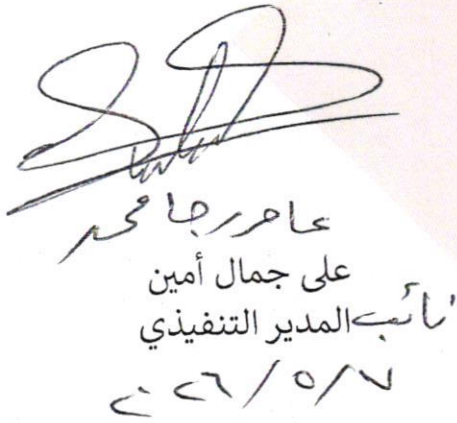 عامر رجا محمد
على جمال أمين
نائب المدير التنفيذي
٢٠٢٦/٥/٧